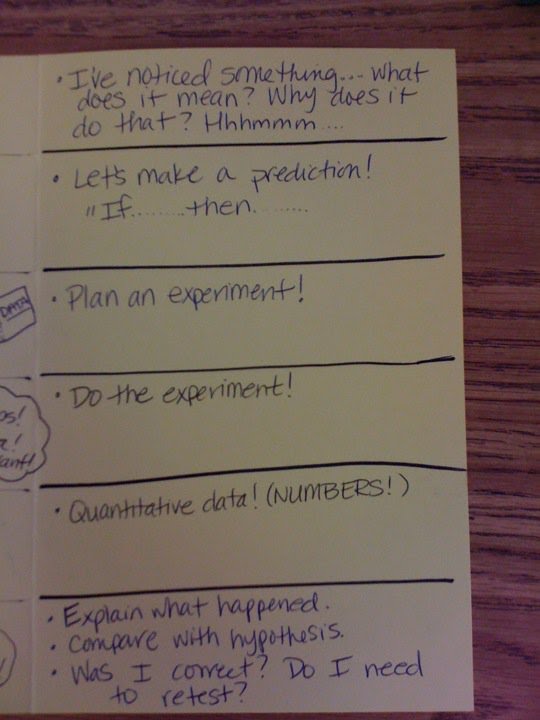 • I've noticed something... What
does it mean? Why does it
do that? Hhhmmm....
• Let's make a prediction!
"If........then........
DATA
• Plan an experiment!
• Do the experiment!
• Quantitative data! (NUMBERS!)
• Explain what happened.
• Compare with hypothesis.
• Was I correct? Do I need
to retest?